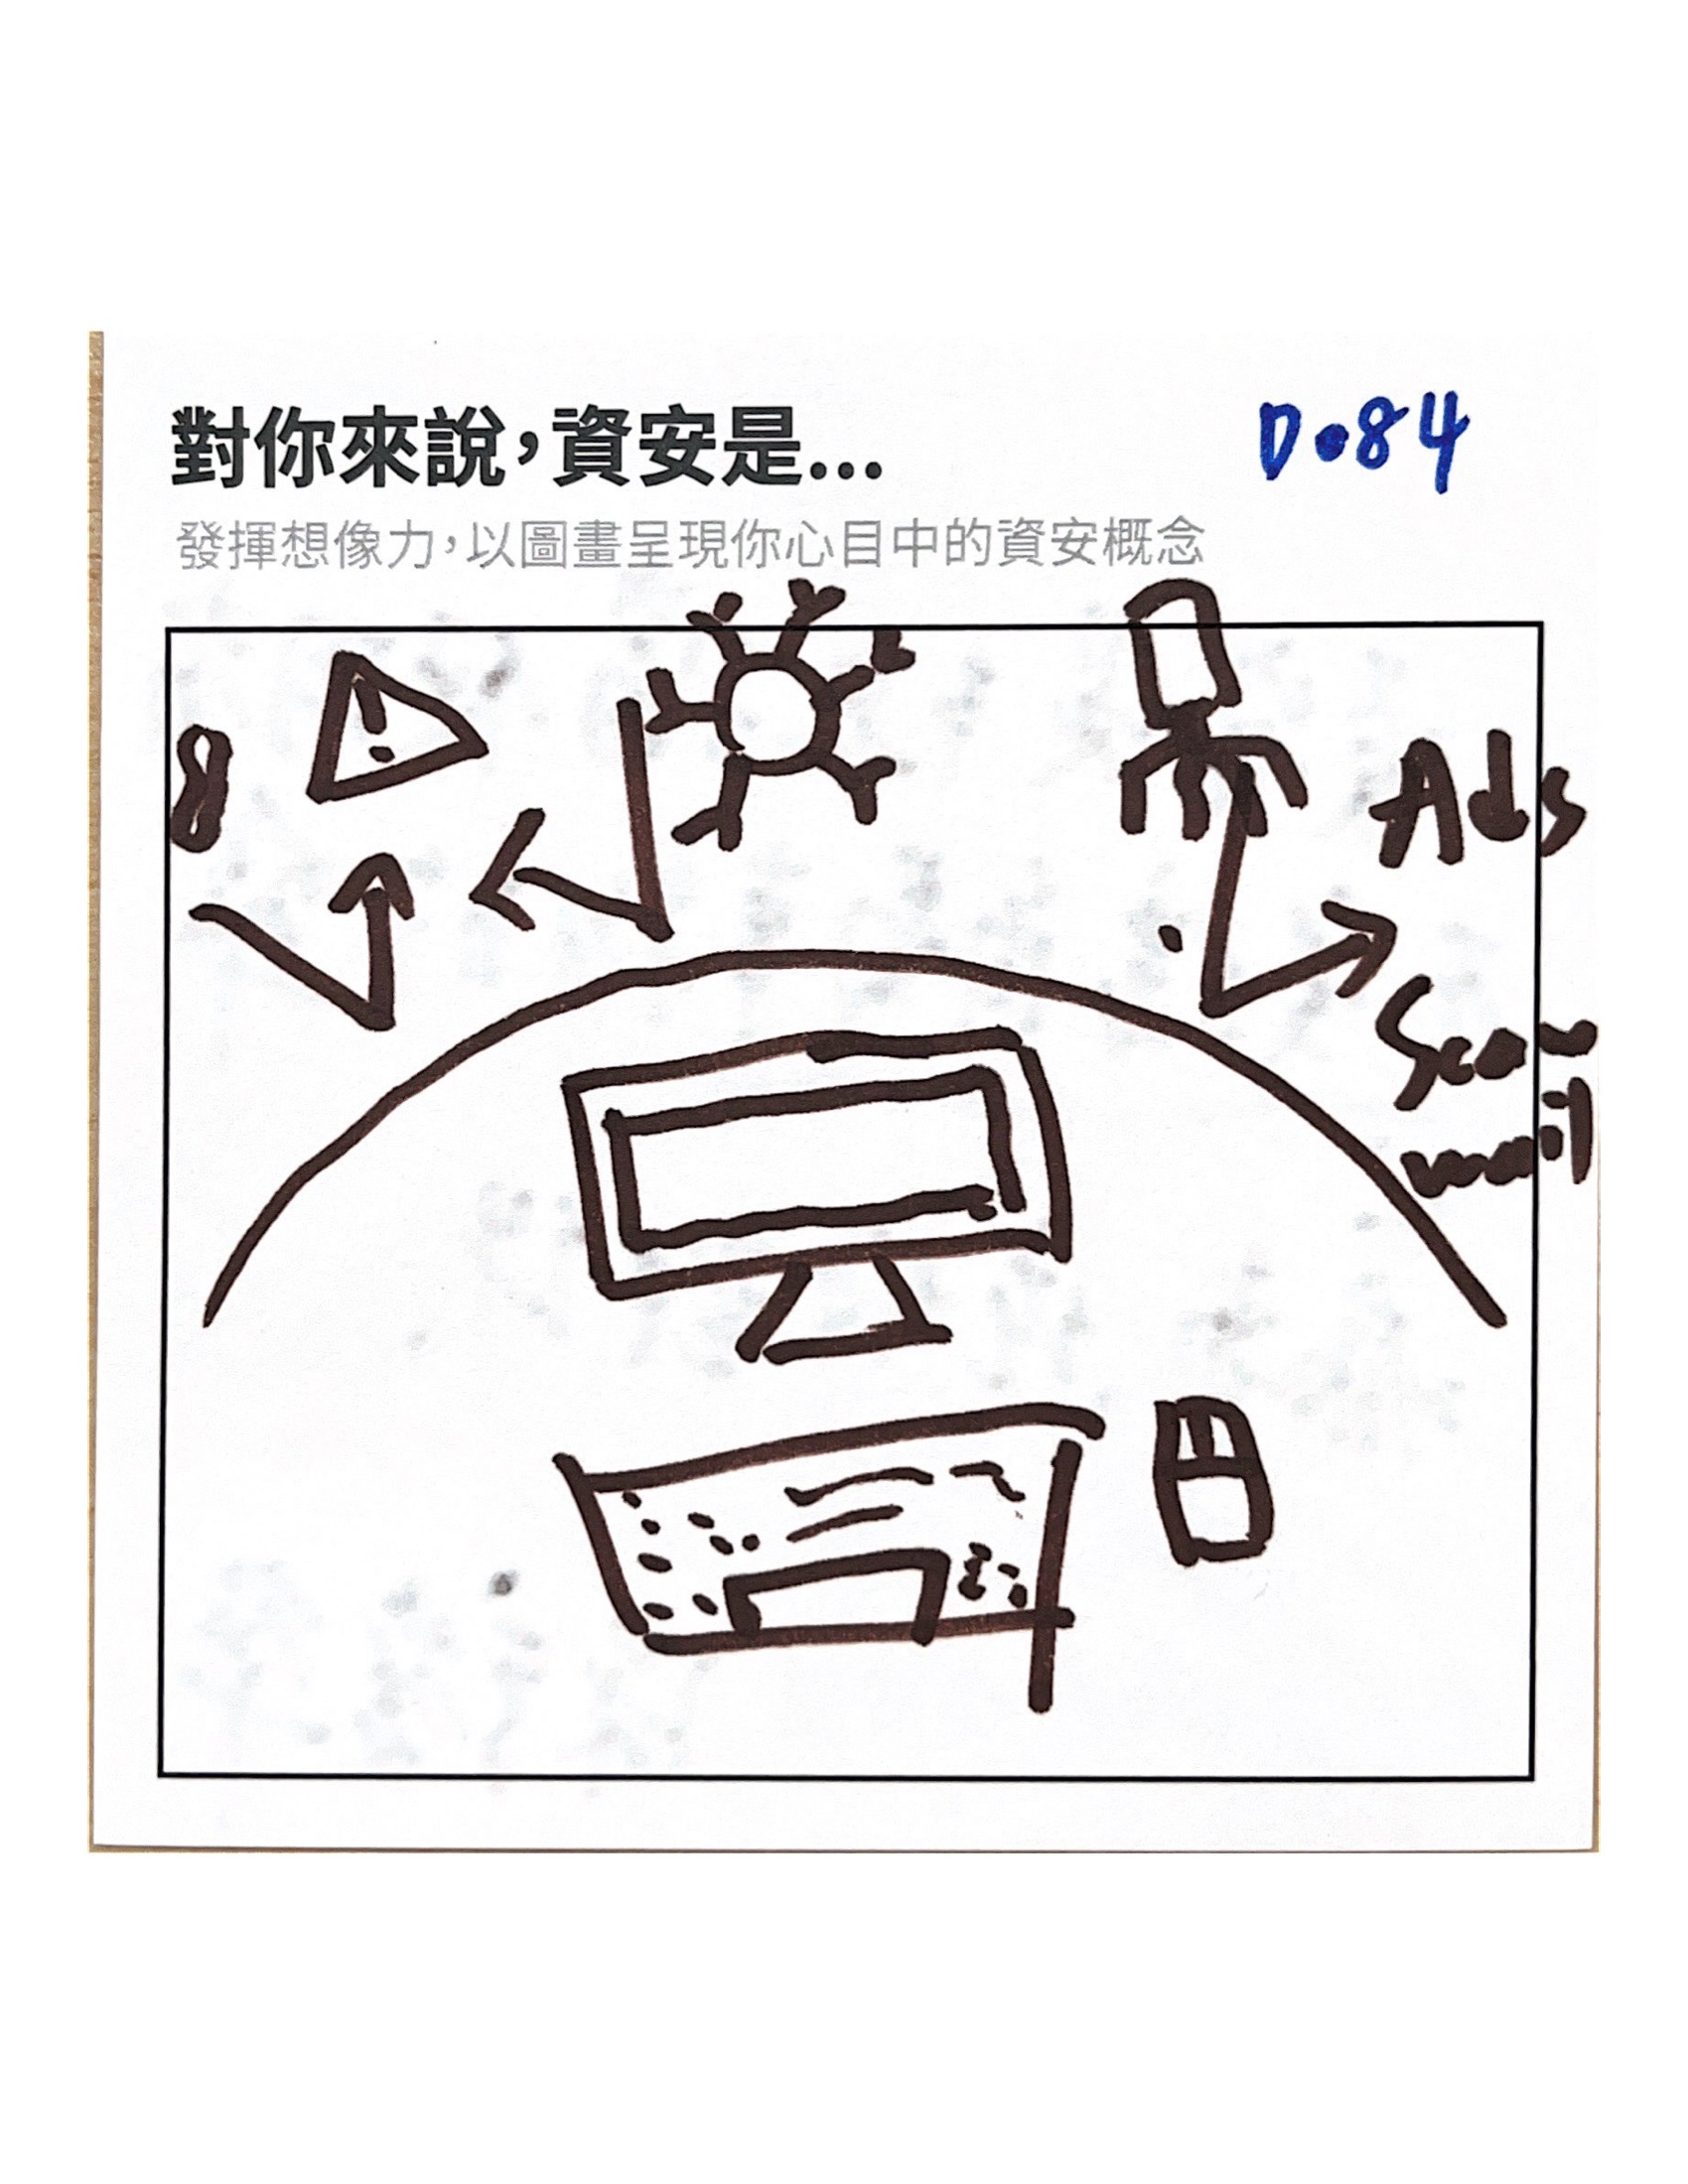 對你來說，資安是...
D084
發揮想像力，以圖畫呈現你心目中的資安概念
!
8
Ads
mail